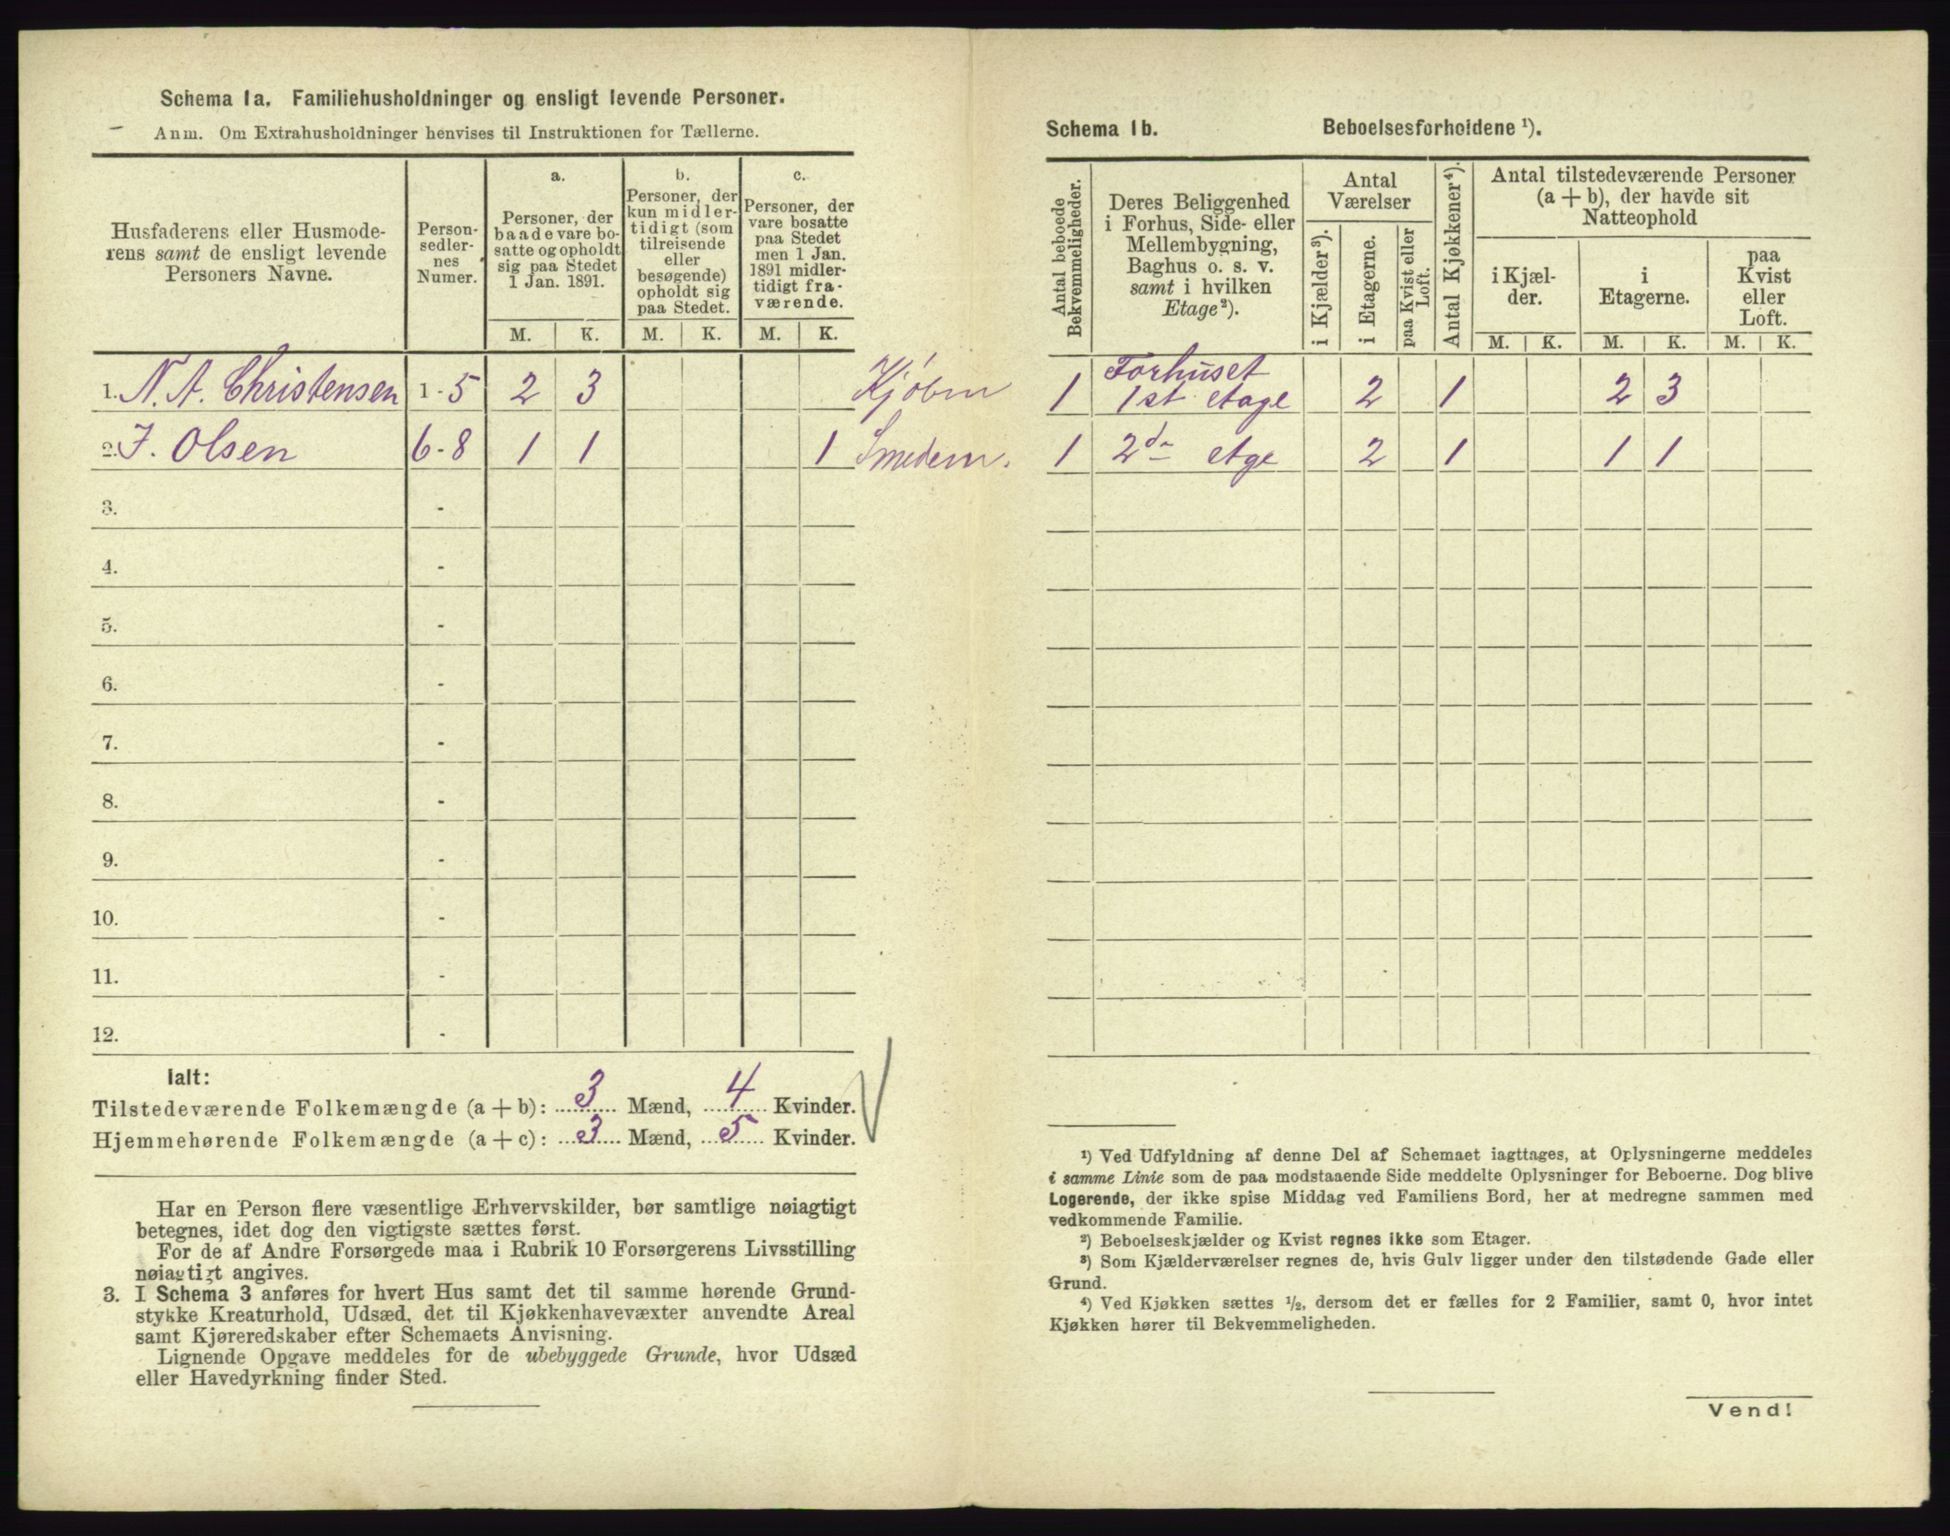 Schema 1a. Familiehusholdninger og ensligt levende Personer.
Anm. Om Extrahusholdninger henvises til Instruktionen for Tællerne.
Husfaderens eller Husmode-
rens samt de ensligt levende
Personers Navne.
Person-
sedler-
nes
Numer.
a.
Personer, der
baade vare bo-
satte og opholdt
sig paa Stedet
1 Jan. 1891.
b.
Personer, der
kun midler-
tidigt (som
tilreisende
eller
besøgende)
opholdt sig
paa Stedet.
c.
Personer, der
vare bosatte
paa Stedet
men 1 Jan.
1891 midler-
tidigt fra-
værende.
M. K. M. K. M. K.
1. N. A. Christensen 1 - 5 2 3 Kjøbm
2. J. Olsen 6 - 8 1 1 1 Smedem.
3. -
4. -
5. -
6. -
7. -
8. -
9. -
10. -
11. -
12. -
Ialt:
Tilstedeværende Folkemængde (a + b): 3 Mænd, 4 Kvinder.
Hjemmehørende Folkemængde (a + c): 3 Mænd, 5 Kvinder.
Har en Person flere væsentlige Erhvervskilder, bør samtlige nøiagtigt
betegnes, idet dog den vigtigste sættes først.
For de af Andre Forsørgede maa i Rubrik 10 Forsørgerens Livsstilling
nøiagtigt angives.
3. I Schema 3 anføres for hvert Hus samt det til samme hørende Grund-
stykke Kreaturhold, Udsæd, det til Kjøkkenhavevæxter anvendte Areal
samt Kjøreredskaber efter Schemaets Anvisning.
Lignende Opgave meddeles for de ubebyggede Grunde, hvor Udsæd
eller Havedyrkning finder Sted.
Schema 1b. Beboelsesforholdene ¹).
Antal beboede
Bekvemmeligheder.
Deres Beliggenhed
i Forhus, Side- eller
Mellembygning,
Baghus o. s. v.
samt i hvilken
Etage²).
Antal
Værelser
i Kjælder³).
i Etagerne.
paa Kvist eller
Loft.
Antal Kjøkkener⁴).
Antal tilstedeværende Personer
(a + b), der havde sit
Natteophold
i Kjæl-
der.
i
Etagerne.
paa
Kvist
eller
Loft.
M. K. M. K. M. K.
1 Forhuset
1st etage 2 1 2 3
1 2den etge 2 1 1 1
¹) Ved Udfyldning af denne Del af Schemaet iagttages, at Oplysningerne meddeles
i samme Linie som de paa modstaaende Side meddelte Oplysninger for Beboerne. Dog blive
Logerende, der ikke spise Middag ved Familiens Bord, her at medregne sammen med
vedkommende Familie.
²) Beboelseskjælder og Kvist regnes ikke som Etager.
³) Som Kjælderværelser regnes de, hvis Gulv ligger under den tilstødende Gade eller
Grund.
⁴) Ved Kjøkken sættes ½, dersom det er fælles for 2 Familier, samt 0, hvor intet
Kjøkken hører til Bekvemmeligheden.
Vend!